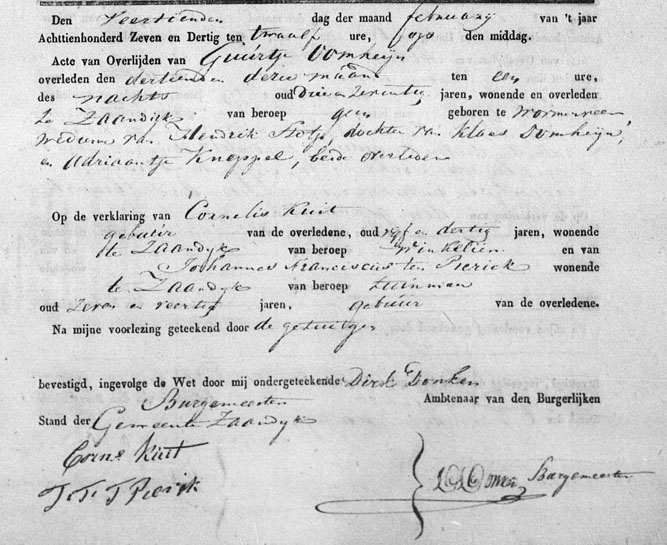 Den Veertienden dag der maand february van 't jaar
Achttienhonderd Zeven en Dertig ten twaalf ure, op den middag.
Acte van Overlijden van Guurtje Domheijn
overleden den dertienden dezer maand ten een ure,
des nachts oud Drie en Zeventig jaren, wonende en overleden
te Zaandijk van beroep geen geboren te Wormerveer
weduwe van Hendrik dochter van Klaas Domheijn,
en Adriaantje Kneppel, beide overleden
Op de verklaring van Cornelis Kuit
gebuur van de overledene, oud vijf en dertig jaren, wonende
te Zaandijk van beroep Winkelier en van
Johannes Franciscus ten Pierick wonende
te Zaandijk van beroep tuinman
oud Zeven en veertig jaren, gebuur van de overledene.
Na mijne voorlezing geteekend door de getuigen
bevestigd, ingevolge de Wet door mij ondergeteekende Dirk Donker
Burgemeester Ambtenaar van den Burgerlijken
Stand der Gemeente Zaandijk
Corns Kuit
J. F. T Pierik
Donker Burgemeester